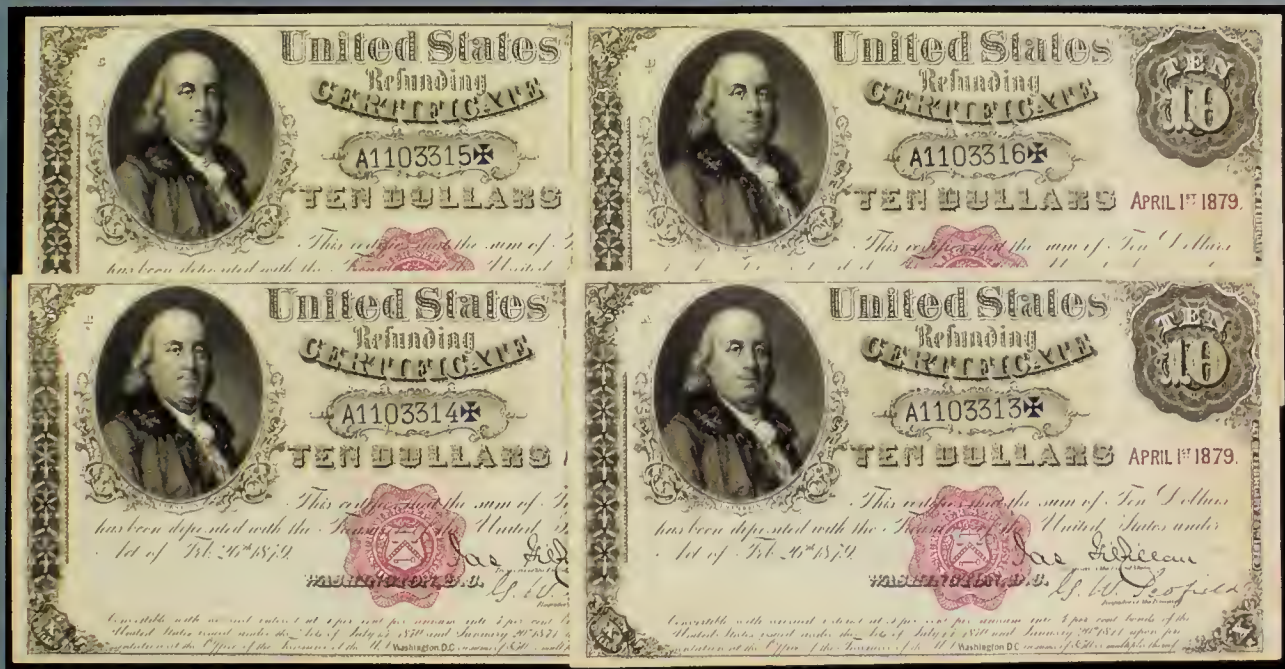 United States
Refunding
CERTIFICATE
A1103315
TEN DOLLARS
This certifies that the sum of
has been deposited with the United
United States
Refunding
CERTIFICATE
TEN
10
A1103316
TEN DOLLARS APRIL 1ST 1879.
This certifies that the sum of Ten Dollars
United States
Refunding
CERTIFICATE
A1103314
TEN DOLLARS
This certifies that the sum of
has been deposited with the United
Act of Feb. 26th 1879.
Jas
WASHINGTON, D.C.
Convertible with accrued interest at 4 per cent per annum into 4 per cent
United States issued under the
Washington D.C.
United States
Refunding
CERTIFICATE
TEN
10
A1103313
TEN DOLLARS APRIL 1ST 1879.
This certifies that the sum of Ten Dollars
has been deposited with the United States under
Act of Feb. 26th 1879.
Jas Gilfillan
WASHINGTON, D.C.
G. W. Scofield
Convertible with accrued interest at 4 per cent per annum into 4 per cent bonds of the
United States issued under the
Washington D.C.